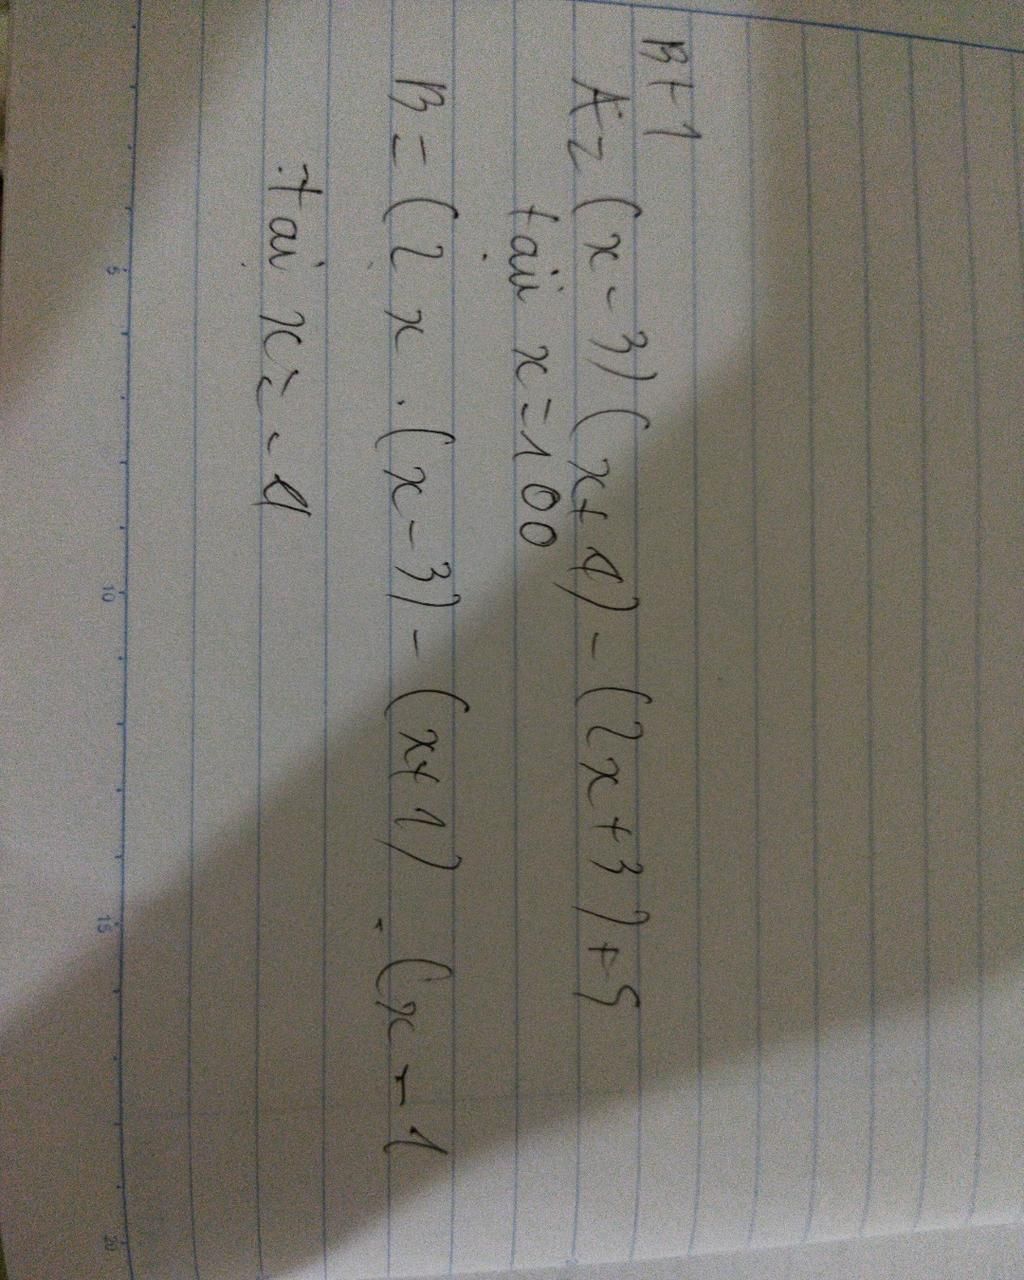 Bt 1
A = (x - 3) (x + 4) - (2x + 3) + 5
tại x = 100
B = (2x . (x - 3) - (x + 1) . (x - 1
tại x = - 4
5
10
15
20